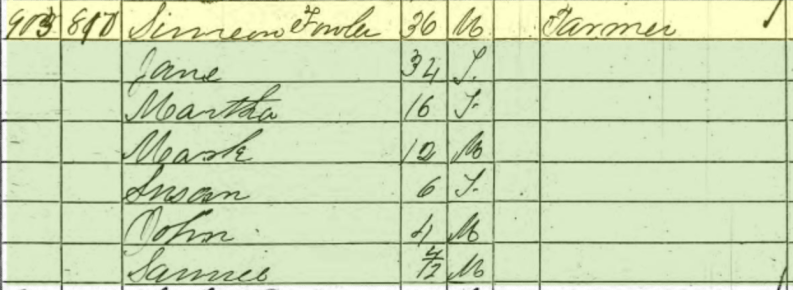 903 890 Simeon Fowler 36 M Farmer
Jane 34 F.
Martha 16 F.
Mark 12 M
Susan 6 F.
John 4 M
Samuel M